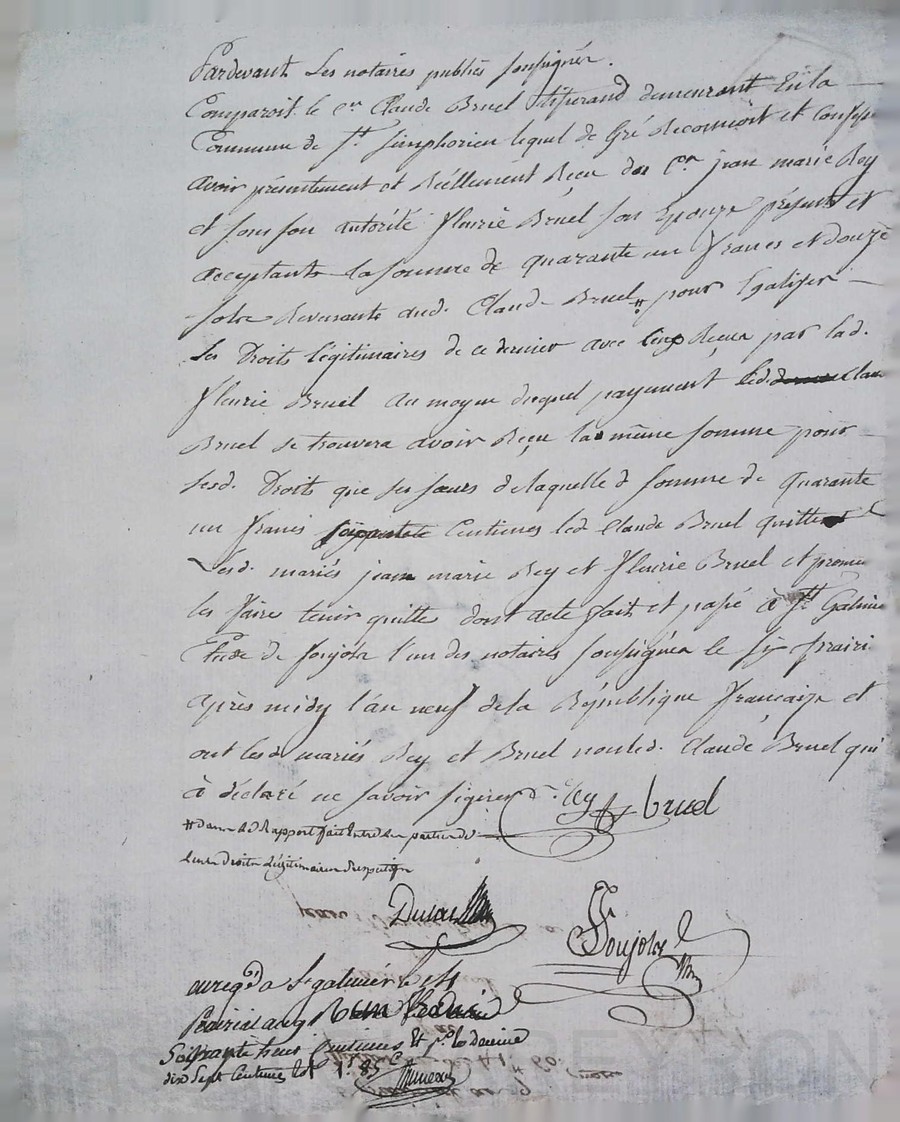 Pardevant Les notaires publics soussignés.
Comparoit le cen Claude Bruel tisserand demeurant En la
Commune de St Simphorien lequel de Gré Reconnoit et Confesse
avoir présentement et Réellement Reçu du Cen jean marie Rey
et sous son autorité fleurie Bruel son Epouze présents et
acceptants la somme de quarante un francs et douze
sols Revenants aud. Claude Bruel # pour Egaliser
Les Droits légitimaires de ce dernier avec Ceux Reçus par lad.
fleurie Bruel au moyen duquel payement led. Clau
Bruel se trouvera avoir Reçu la même somme pour
sesd. Droits que ses sœurs de laquelle d somme de quarante
un francs soixante Centimes led Claude Bruel quitte
Lesd. mariés jean marie Rey et fleurie Bruel et promet
les faire tenir quitte dont acte fait et passé à St Galmier
Etude de Soujols l'un des notaires soussignés le six prairi
après midy l'an neuf de la République francaise et
ont lesd mariés Rey et Bruel non led. Claude Bruel qui
à déclaré ne savoir signer
Rey bruel
# dans le Rapport fait Entre les parties de
leurs Droits Légitimaires Respectifs
Soujols
enregé a St galmier le 14
Prairial an 9 Reçu
Soixante trois Centimes et pr le decime
dix Sept Centimes